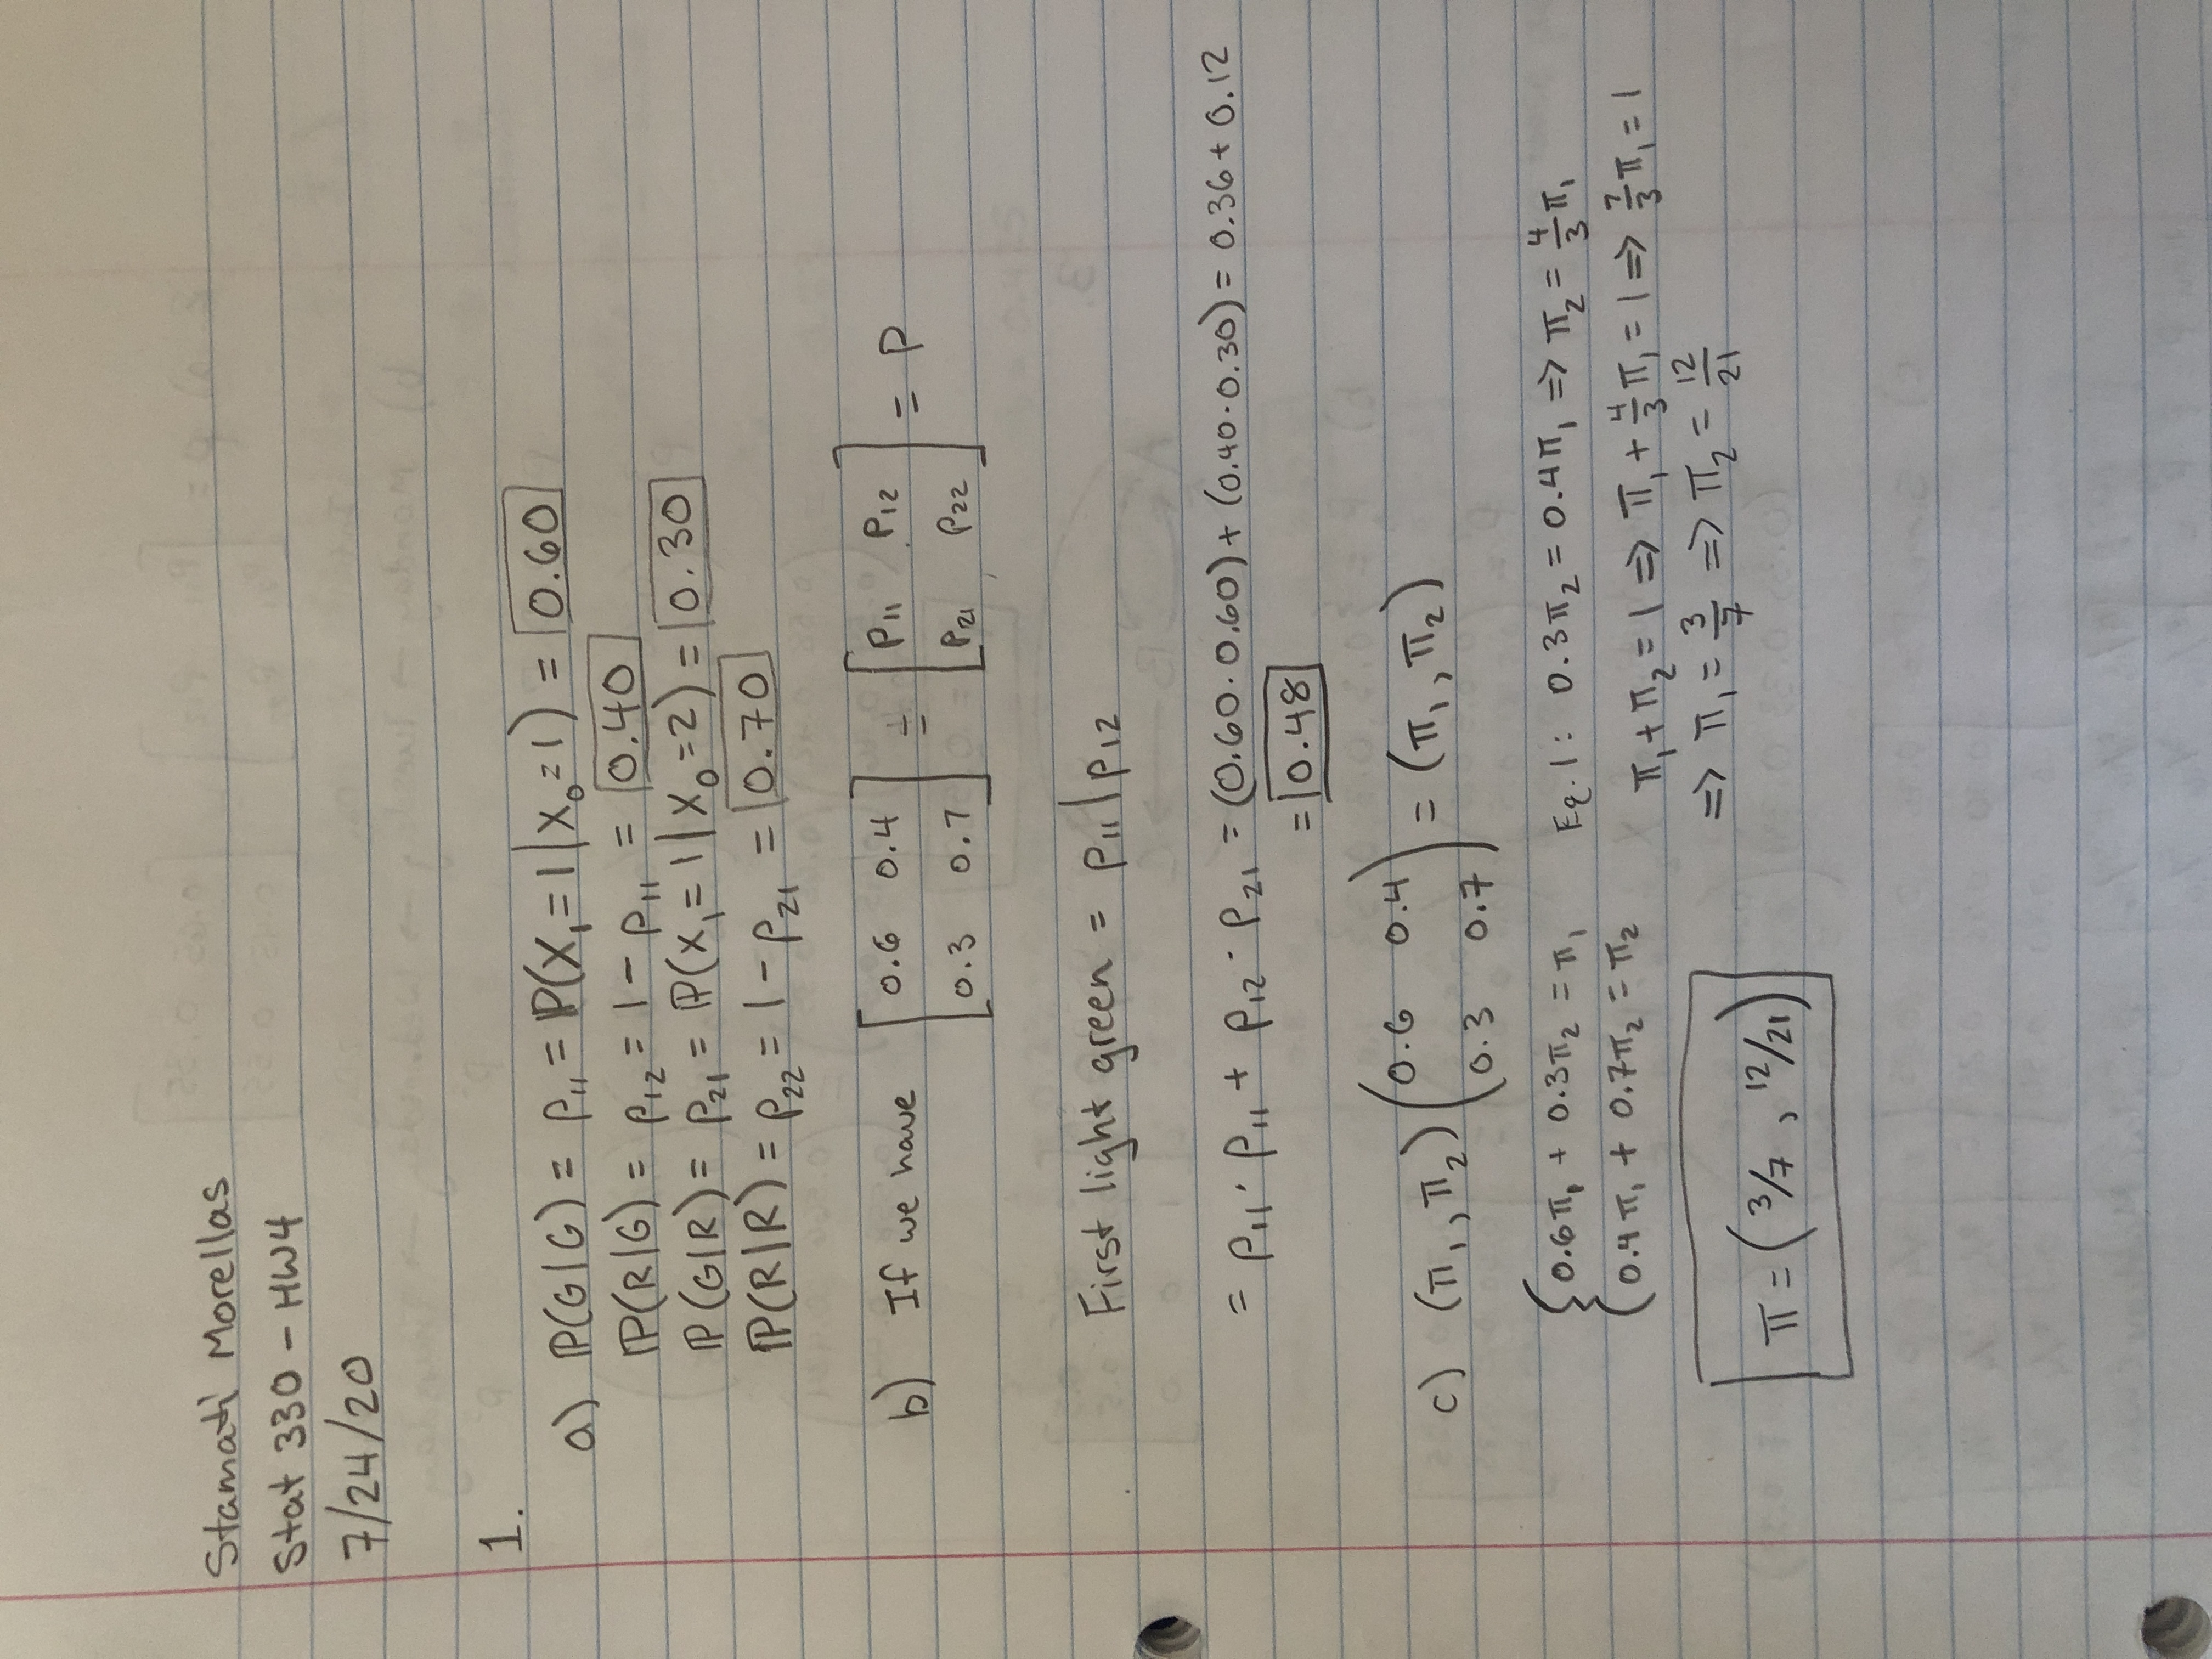 Stamati Morellas
Stat 330 - HW4
7/24/20
1.
a) ℙ(G|G) = p₁₁ = ℙ(X₁=1|X₀=1) = 0.60
ℙ(R|G) = p₁₂ = 1 - p₁₁ = 0.40
ℙ(G|R) = p₂₁ = ℙ(X₁=1|X₀=2) = 0.30
ℙ(R|R) = p₂₂ = 1 - p₂₁ = 0.70
b) If we have [0.6 0.4; 0.3 0.7] = [p₁₁ p₁₂; p₂₁ p₂₂] = P
First light green = p₁₁|p₁₂
= p₁₁ · p₁₁ + p₁₂ · p₂₁ = (0.60 · 0.60) + (0.40 · 0.30) = 0.36 + 0.12
= 0.48
c) (π₁, π₂) (0.6 0.4; 0.3 0.7) = (π₁, π₂)
{0.6π₁ + 0.3π₂ = π₁ Eq. 1: 0.3π₂ = 0.4π₁ => π₂ = 4/3 π₁
0.4π₁ + 0.7π₂ = π₂ π₁ + π₂ = 1 => π₁ + 4/3 π₁ = 1 => 7/3 π₁ = 1
=> π₁ = 3/7 => π₂ = 12/21
π = (3/7, 12/21)